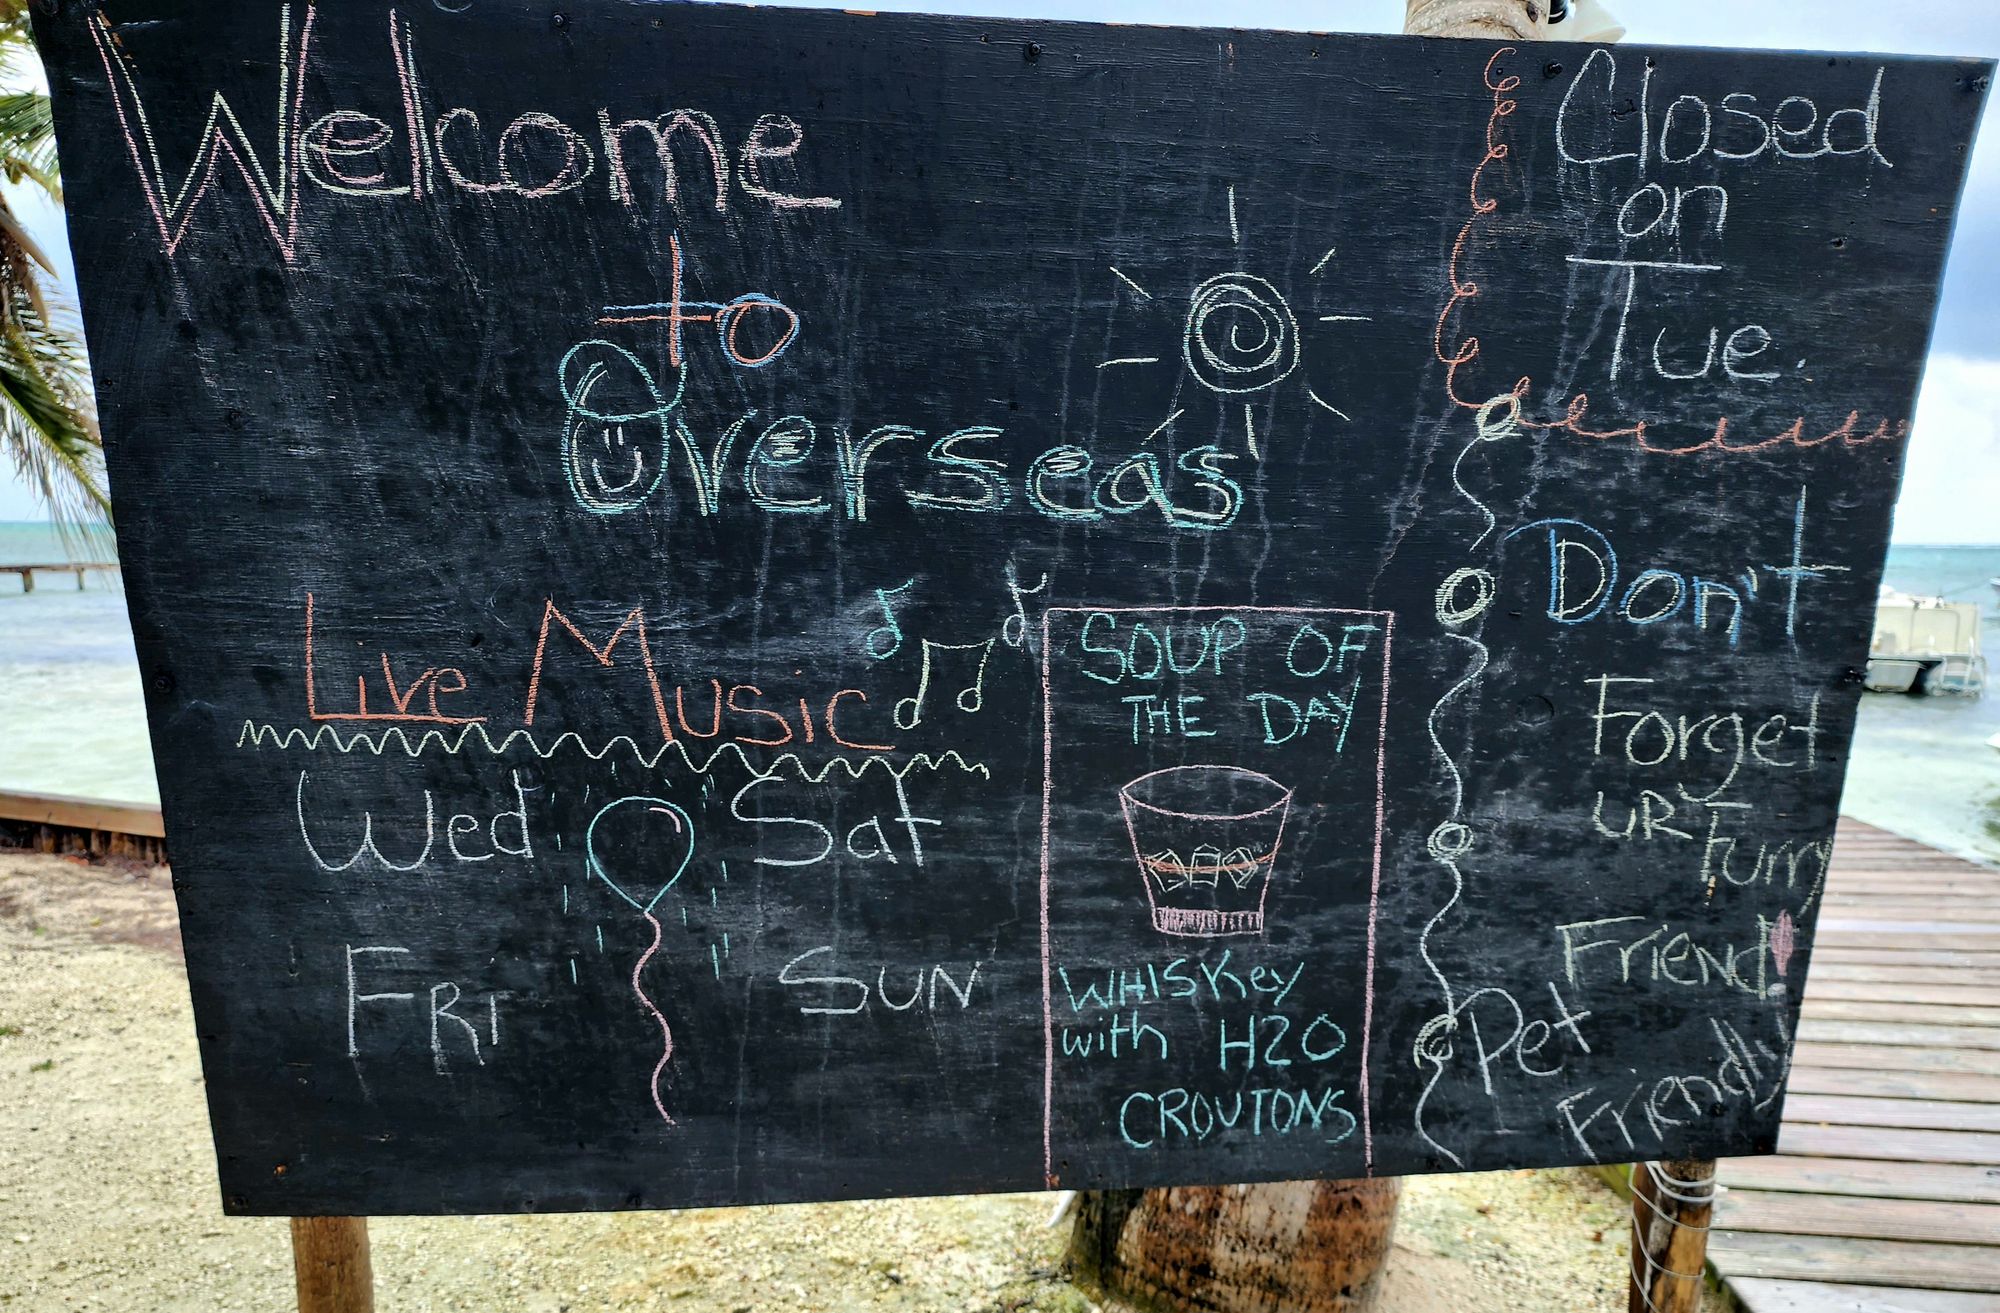 Welcome
to
Overseas
Closed
on
Tue.
Live Music
Wed Sat
Fri Sun
SOUP OF
THE DAY
WHISKey
with H2O
CROUTONS
Don't
Forget
UR Furry
Friend!
Pet
Friendly